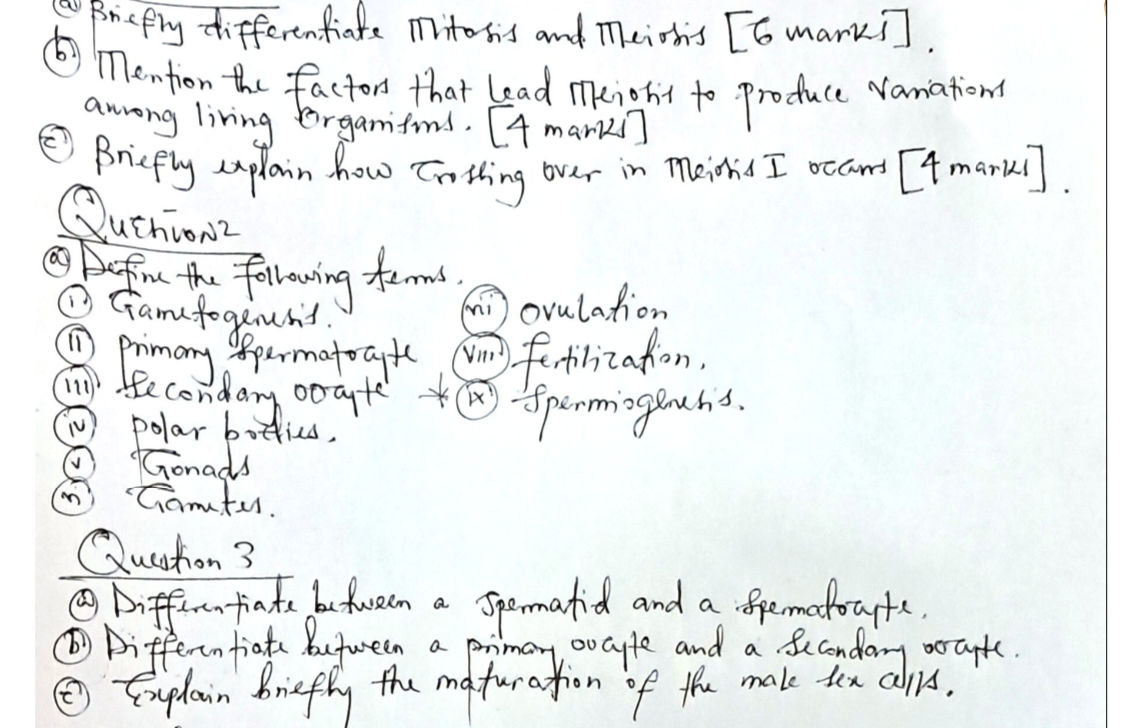 (a) Briefly differentiate Mitosis and Meiosis [6 marks].
(b) Mention the factors that lead Meiosis to produce variations
among living organisms. [4 marks]
(c) Briefly explain how Crossing over in Meiosis I occurs [4 marks].
Question 2
(a) Define the following terms.
(i) Gametogenesis. (vii) ovulation
(ii) primary spermatocyte (viii) fertilization.
(iii) secondary oocyte * (ix) spermiogenesis.
(iv) polar bodies.
(v) Gonads
(vi) Gametes.
Question 3
(a) Differentiate between a spermatid and a spermatocyte.
(b) Differentiate between a primary oocyte and a secondary oocyte.
(c) Explain briefly the maturation of the male sex cells.